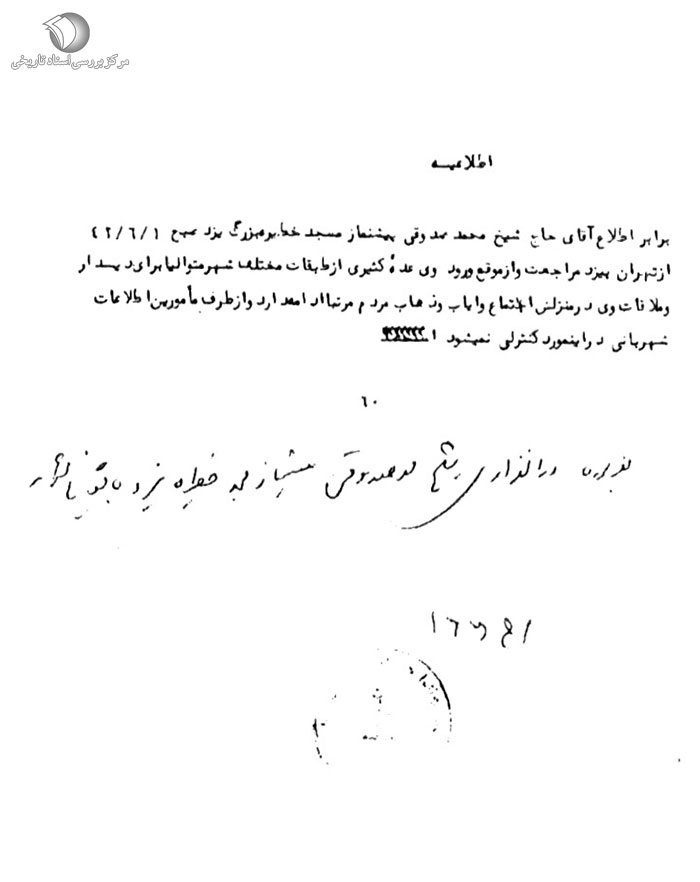 مرکز بررسی اسناد تاریخی
اطلاعیــه
برابر اطلاع آقای حاج شیخ محمد صدوقی پیشنماز مسجد حظیره بزرگ یزد صبح ۴۲/۶/۱
از تهران بیزد مراجعت و از موقع ورود وی عدهٔ کثیری از طبقات مختلف شهر متوالیا برای دیدار
و ملاقات وی در منزلش اجتماع و ایاب و ذهاب مردم مرتبا ادامه دارد و از طرف مأمورین اطلاعات
شهربانی در اینمورد کنترلی نمیشود ا
۶۰
شیخ صدوقی پیشنماز یزد